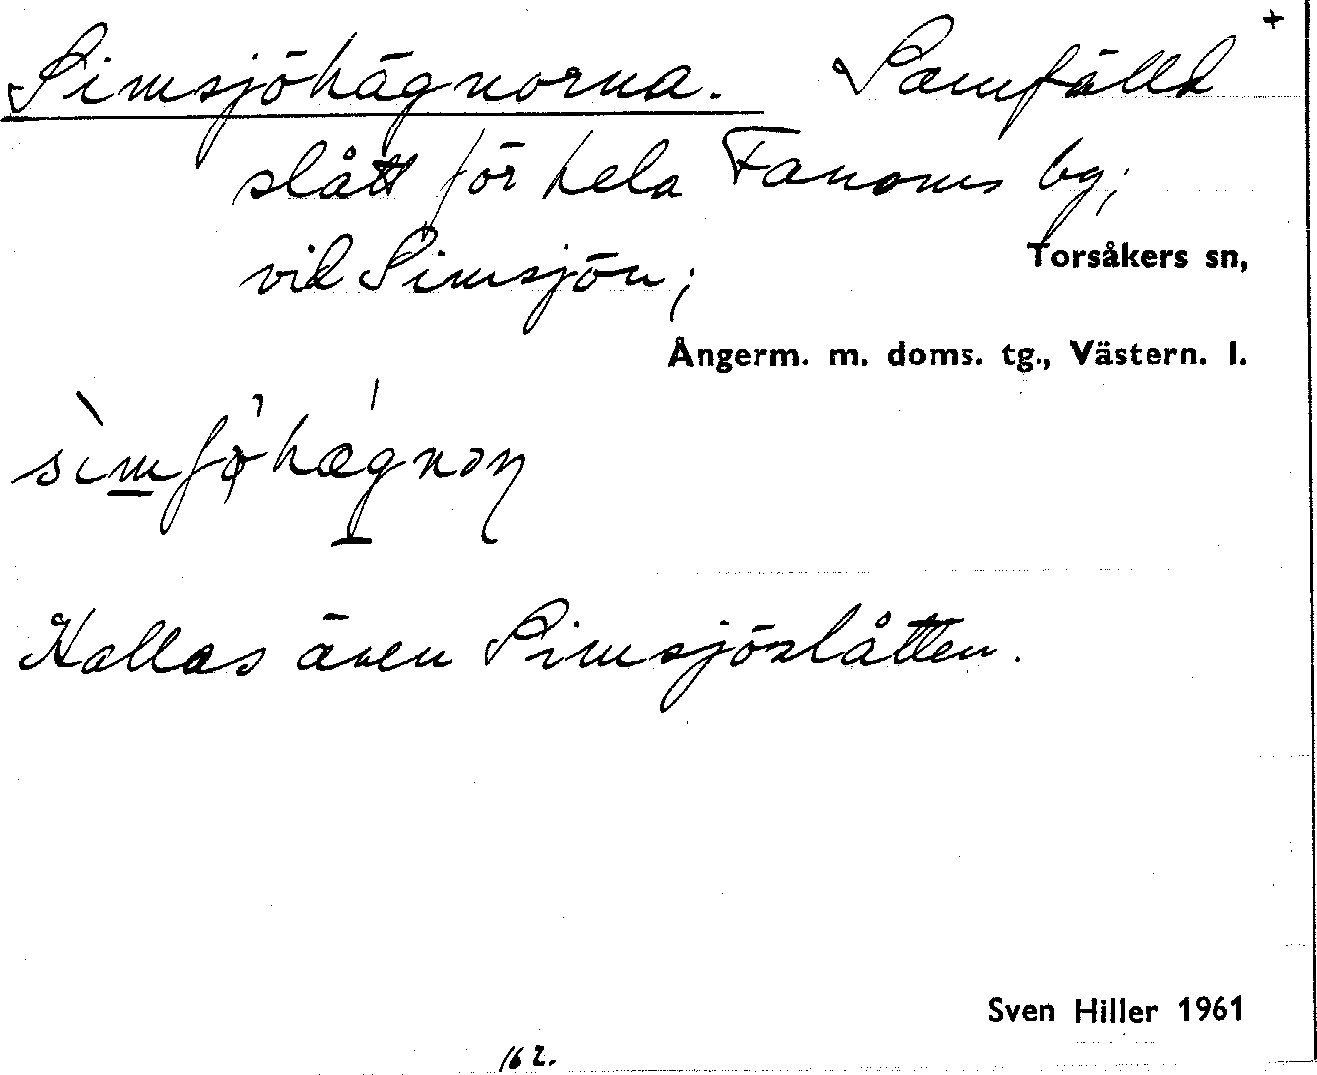 +
Simsjöhägnorna. Samfälld
slått för hela Fanoms bg;
vid Simsjön;
Torsåkers sn,
Ångerm. m. doms. tg., Västern. l.
Kallas även Simsjöslåtten.
Sven Hiller 1961
162.